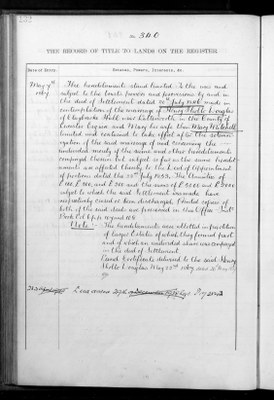 No. 340
THE RECORD OF TITLE TO LANDS ON THE REGISTER
Date of Entry.
May 7th
The hereditaments stand limited to the uses and
subject to the trusts powers and provisions by and in
the deed of Settlement dated 20th July 1854 made in
contemplation of the marriage of Henry Sholto Douglas
of Claybrooke Hall near Lutterworth in the County of
Leicester Esquire and Mary his wife then Mary Mitchell
limited and contained to take effect after the solemni-
zation of the said marriage of and concerning the
undivided moiety of the same and other hereditaments
comprised therein but subject so far as the same heredit
aments are affected thereby to the Deed of Appointment
of portions dated the 25th July 1833. The Annuities of
and £200 and the sums of £3000 and £2000
subject to which the said Settlement was made have
respectively ceased or been discharged. Printed copies of
both of the said deeds are preserved in this Office
Note:
The hereditaments were allotted in partition
of larger Estates of which they formed part
and of which an undivided share was comprised
in the deed of Settlement.
Land Certificate delivered to the said Henry
Sholto Douglas May 25th 1867